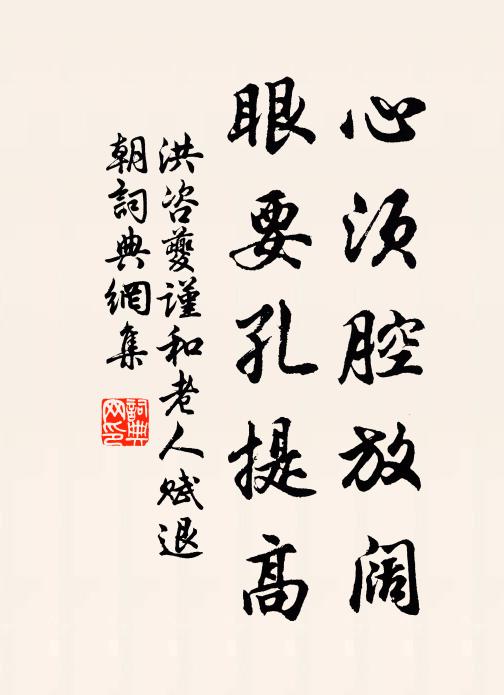 心须腔放阔
眼要孔提高
洪咨夔谨和老人赋退
朝詞典網集
詞典
网印